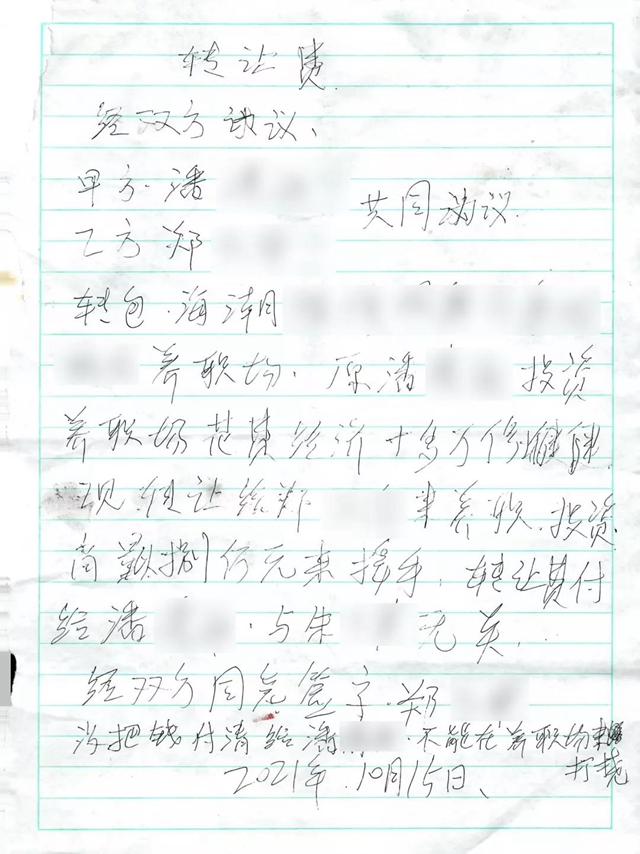 转让费
经双方协议、
甲方·潘
共同协议.
乙方郑
转包·海潮
养职场·原潘 投资
养职场花集经济十多万修
现转让给郑 来养职.投资
商 捌仟元来接手.转让费付
给潘 ·与朱 无关.
经双方同意签字·郑
当把钱付清给潘 ·不能在养职场来
打挠
2021年.10月15日、